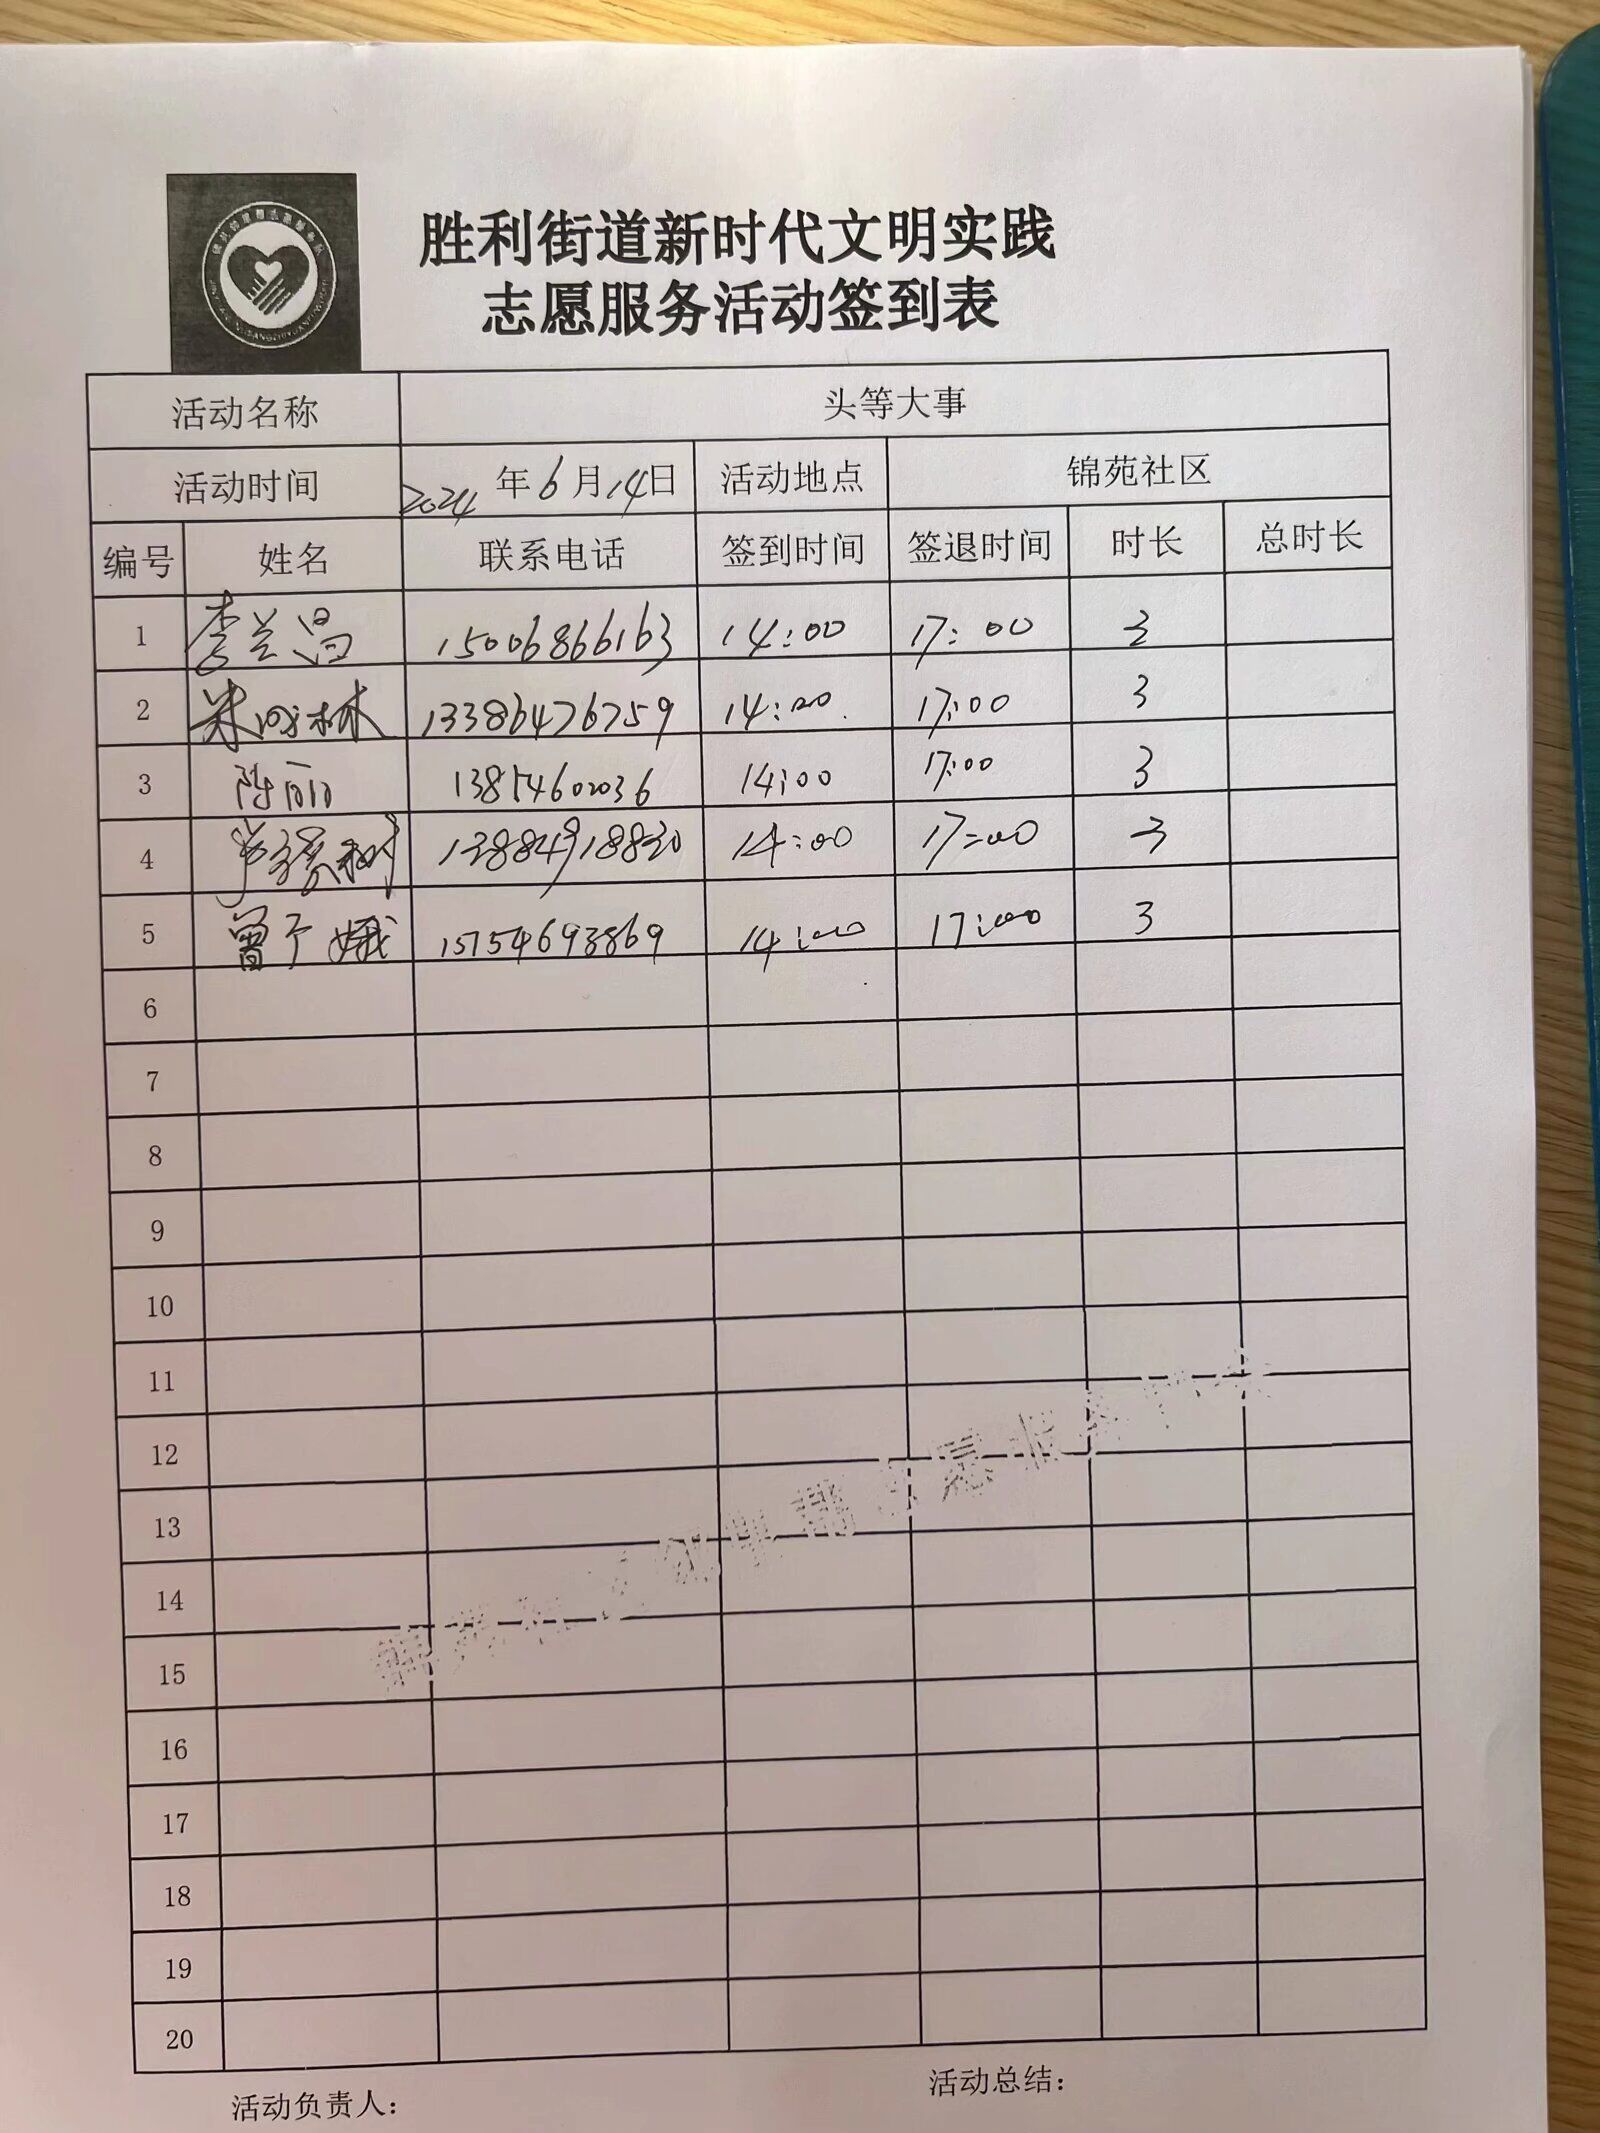 胜利街道新时代文明实践
志愿服务活动签到表
活动名称 头等大事
活动时间 2024年6月14日 活动地点 锦苑社区
编号 姓名 联系电话 签到时间 签退时间 时长 总时长
1 李兰昌 15006866163 14:00 17:00 3
2 13386476759 14:00 17:00 3
3 陈丽 13854602036 14:00 17:00 3
4 14:00 17:00 3
5 曾宁娥 15754693869 14:00 17:00 3
6
7
8
9
10
11
12
13
14
15
16
17
18
19
20
活动负责人：
活动总结：